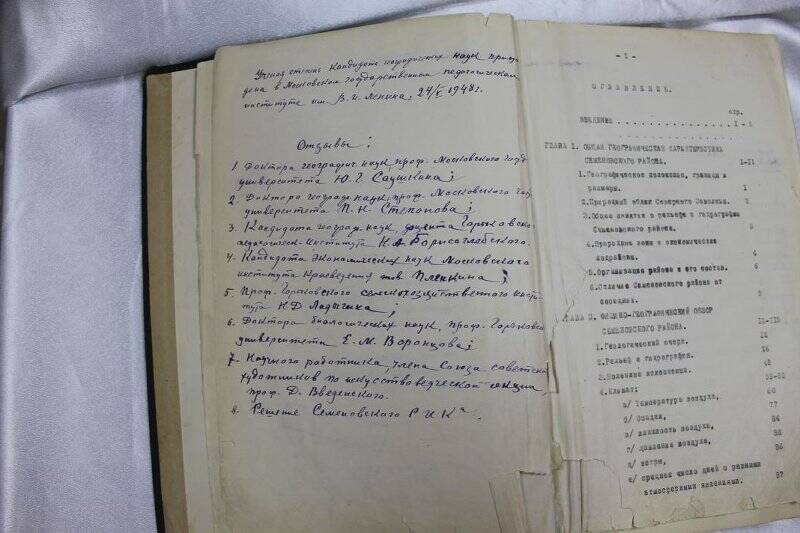 Ученая степень кандидата географических наук присуж-
дена в Московском государственном педагогическом
институте им. В. И. Ленина, 24/V 1948 г.
Отзывы:
1. Доктора географич. наук, проф. Московского госуд.
университета Ю. Г. Саушкина;
2. Доктора географ. наук, проф. Московского гос.
университета П. Н. Степанова;
3. Кандидата географ. наук, доцента Горьковско
педагогическ. института Н. А. Борисоглебского.
4. Кандидата экономических наук Московского
института Краеведения тов. Пленкина;
5. Проф. Горьковского сельскохозяйственного инсти-
тута Н. Д. Ладыгина;
6. Доктора биологических наук, проф. Горьковско
университета Е. М. Воронцова;
7. Научного работника, члена Союза советски
художников по искусствоведческой секции,
проф. Д. Введенского.
8. Решение Семеновского РИКа.
- 1 -
ОГЛАВЛЕНИЕ.
стр.
ВВЕДЕНИЕ
ГЛАВА I. ОБЩАЯ ГЕОГРАФИЧЕСКАЯ ХАРАКТЕРИСТИКА
СЕМЕНОВСКОГО РАЙОНА. I-II
1. Географическое положение, границы и
размеры. I
2. Природный облик Северного Заволжья. 2
3. Общие понятия о рельефе и гидрографии
Семеновского района. 3
4. Природные зоны и экономические
5. Организация района и его состав. 6
6. Отличие Семеновского района от
соседних. 8
ГЛАВА 2. ФИЗИКО-ГЕОГРАФИЧЕСКИЙ ОБЗОР
СЕМЕНОВСКОГО РАЙОНА.
1. Геологический очерк.
2. Рельеф и гидрография.
3. Полезные ископаемые.
4. Климат:
а/ Температура воздуха,
б/ Осадки, 77
в/ влажность воздуха, 84
г/ давление воздуха, 85
д/ ветры, 86
е/ среднее число дней с разными
атмосферными явлениями. 87